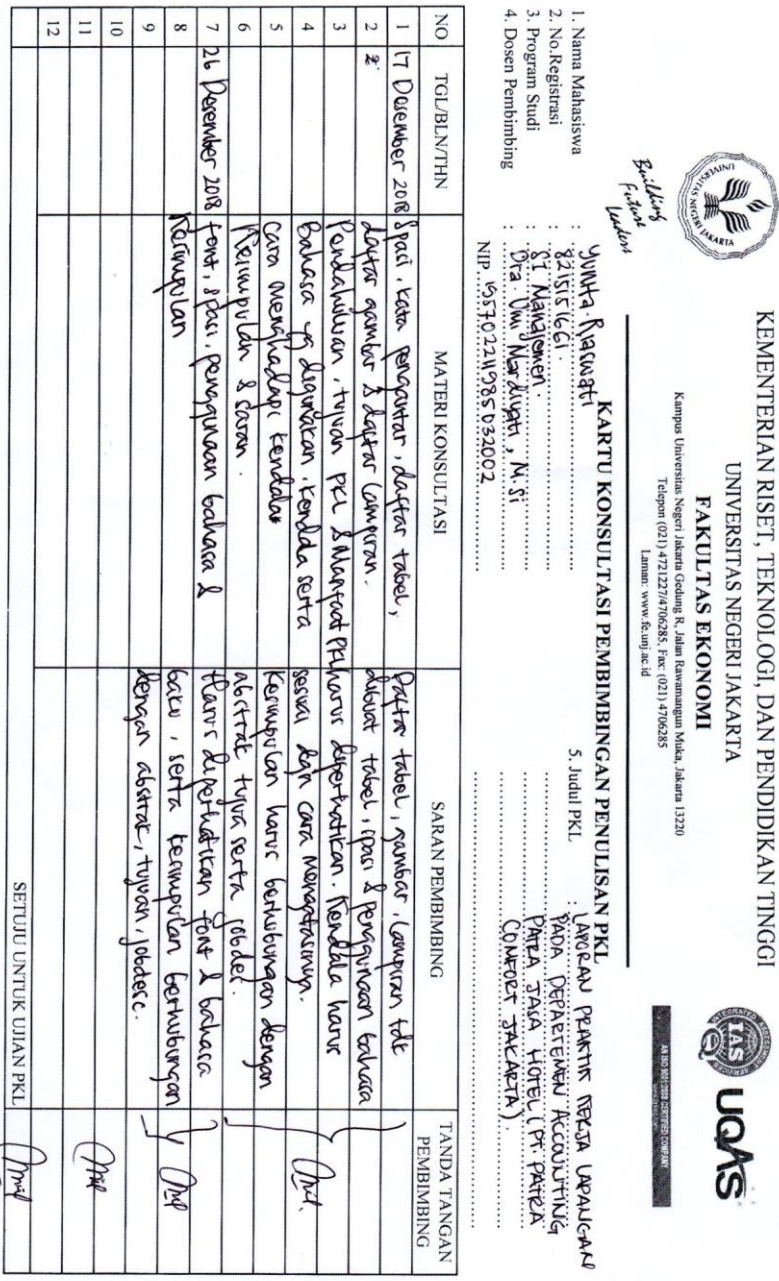 KEMENTERIAN RISET, TEKNOLOGI, DAN PENDIDIKAN TINGGI
UNIVERSITAS NEGERI JAKARTA
FAKULTAS EKONOMI
Kampus Universitas Negeri Jakarta Gedung R, Jalan Rawamangun Muka, Jakarta 13220
Telepon (021) 4721227/4706285, Fax: (021) 4706285
Laman: www.fe.unj.ac.id
UNIVERSITAS NEGERI JAKARTA
Building
Future
Leaders
INTEGRATED ASSESSMENT SERVICES
IAS
UQAS
AN ISO 9001:2008 CERTIFIED COMPANY
KARTU KONSULTASI PEMBIMBINGAN PENULISAN PKL
1. Nama Mahasiswa : Yunita Riaswati
2. No.Registrasi : 8215151661
3. Program Studi : S1 Manajemen
4. Dosen Pembimbing : Dra. Umi Mardiyati, M.Si
NIP. 195702211985032002
5. Judul PKL : LAPORAN PRAKTIK KERJA LAPANGAN
PADA DEPARTEMEN ACCOUNTING
PATRA JASA HOTEL (PT. PATRA
COMFORT JAKARTA).
NO TGL/BLN/THN MATERI KONSULTASI SARAN PEMBIMBING TANDA TANGAN PEMBIMBING
1 17 Desember 2018 Spasi, kata pengantar, daftar tabel, Daftar tabel, gambar, lampiran tdk
2 daftar gambar & daftar lampiran. dibuat tabel, spasi & penggunaan bahasa
3 Pendahuluan, tujuan PKL & Manfaat PKL harus diperhatikan. Kendala harus
4 Bahasa yg digunakan, kendala serta sesuai dgn cara mengatasinya.
5 cara menghadapi kendala Kesimpulan harus berhubungan dengan
6 Kesimpulan & saran. abstrak tujua serta jobdes.
7 26 Desember 2018 font, spasi, penggunaan bahasa & Harus diperhatikan font & bahasa
8 Kesimpulan baku, serta kesimpulan berhubungan
9 dengan abstrak, tujuan, jobdesc.
10
11
12
SETUJU UNTUK UJIAN PKL